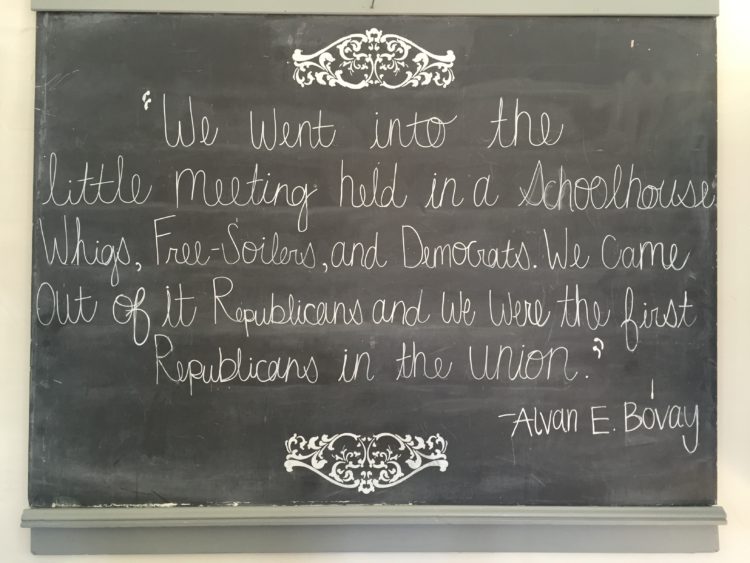 "We went into the
little meeting held in a Schoolhouse
Whigs, Free-Soilers, and Democrats. We came
out of it Republicans and we were the first
Republicans in the union."
-Alvan E. Bovay